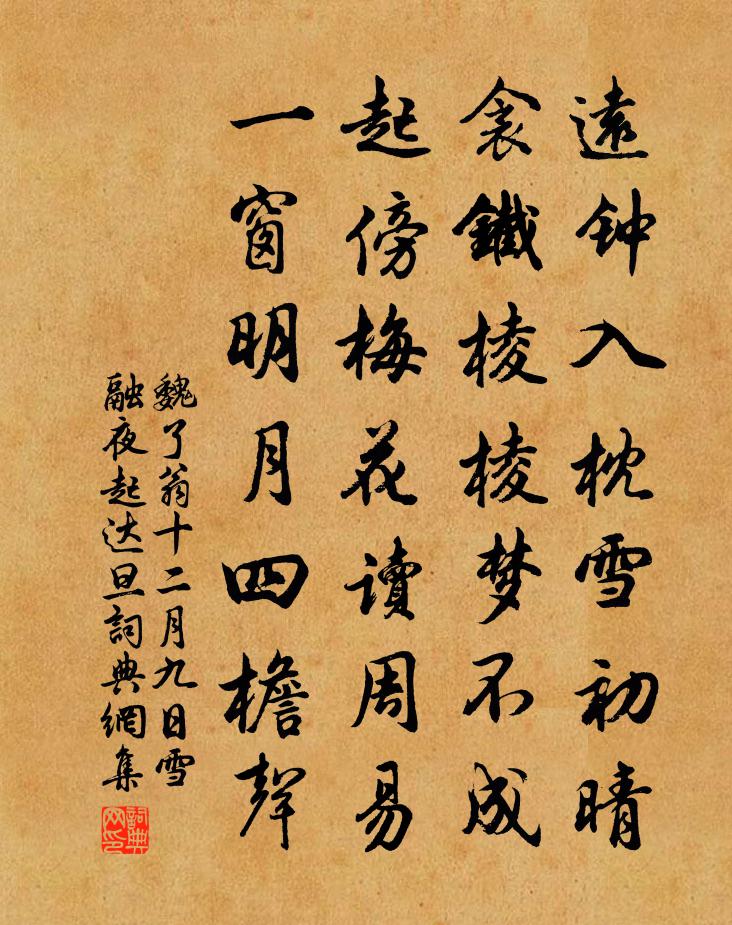 遠钟入枕雪初晴
衾鐵棱棱梦不成
起傍梅花讀周易
一窗明月四檐聲
魏了翁十二月九日雪
融夜起达旦詞典網集
詞典网印